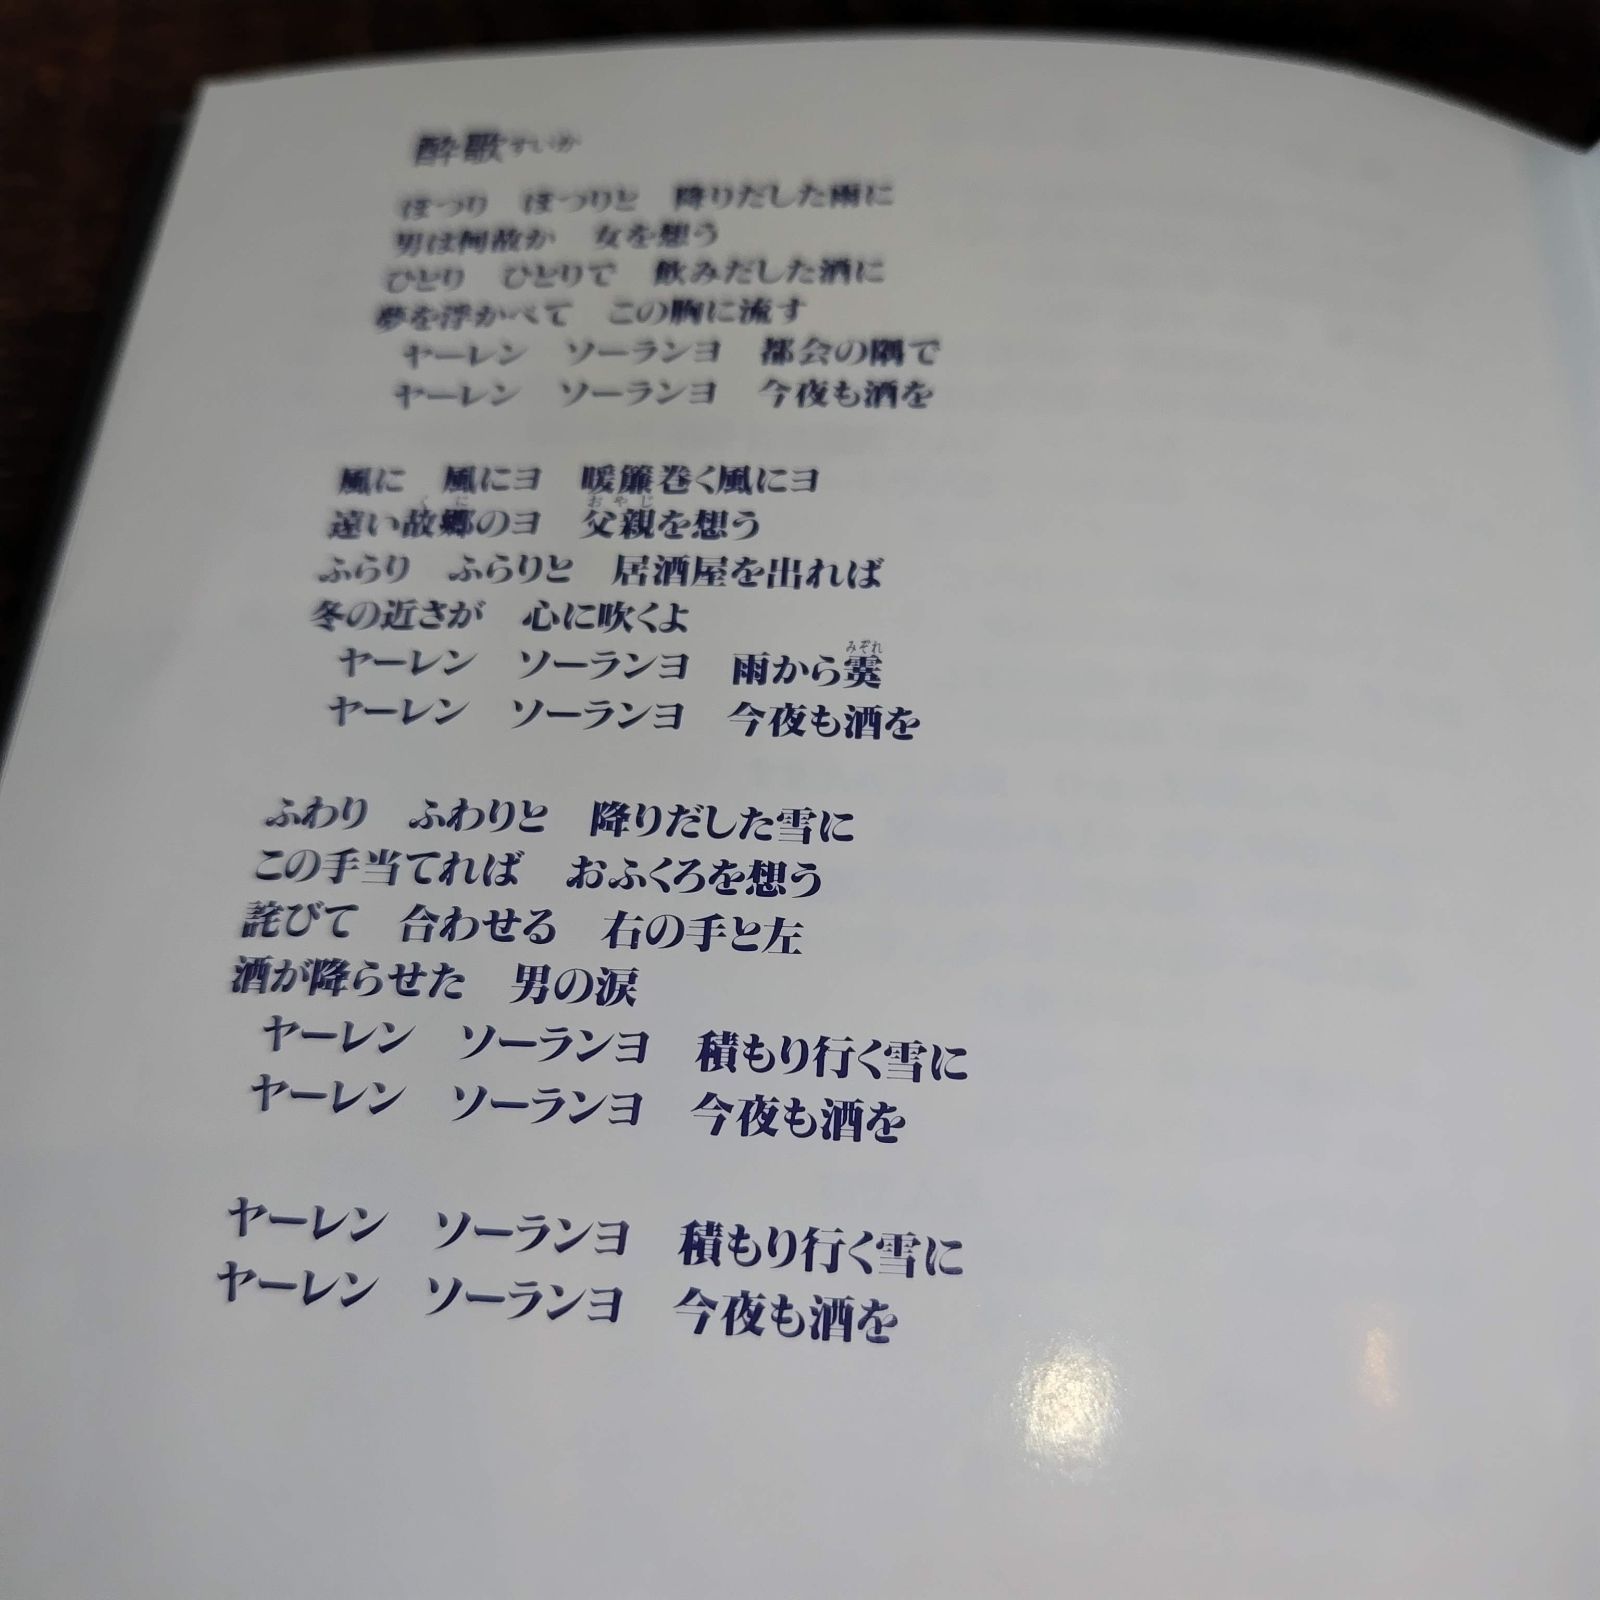 酔歌すいか
ぽつり　ぽつりと　降りだした雨に
男は何故か　女を想う
ひとり　ひとりで　飲みだした酒に
夢を浮かべて　この胸に流す
ヤーレン　ソーランヨ　都会の隅で
ヤーレン　ソーランヨ　今夜も酒を
風に　風にヨ　暖簾巻く風にヨ
くに　おやじ
遠い故郷のヨ　父親を想う
ふらり　ふらりと　居酒屋を出れば
冬の近さが　心に吹くよ
みぞれ
ヤーレン　ソーランヨ　雨から霙
ヤーレン　ソーランヨ　今夜も酒を
ふわり　ふわりと　降りだした雪に
この手当てれば　おふくろを想う
詫びて　合わせる　右の手と左
酒が降らせた　男の涙
ヤーレン　ソーランヨ　積もり行く雪に
ヤーレン　ソーランヨ　今夜も酒を
ヤーレン　ソーランヨ　積もり行く雪に
ヤーレン　ソーランヨ　今夜も酒を